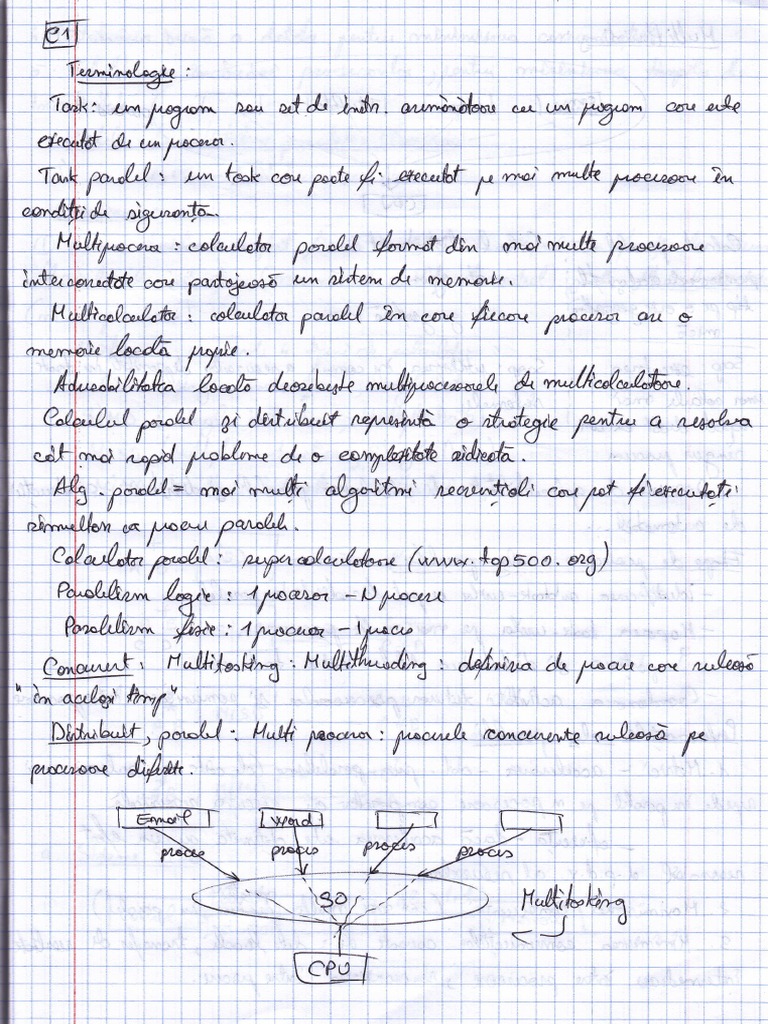 C1
Terminologie:
Task: un program sau set de instr. asemănătoare cu un program care este
executat de un procesor.
Task paralel: un task care poate fi executat pe mai multe procesoare în
condiții de siguranță.
Multiprocesor: calculator paralel format din mai multe procesoare
interconectate care partajează un sistem de memorie.
Multicalculator: calculator paralel în care fiecare procesor are o
memorie locală proprie.
Adresabilitatea locală deosebește multiprocesoarele de multicalculatoare.
Calculul paralel și distribuit reprezintă o strategie pentru a rezolva
cât mai rapid probleme de o complexitate ridicată.
Alg. paralel = mai mulți algoritmi secvențiali care pot fi executați
simultan ca procese paralele.
Calculator paralel: supercalculatoare (www.top500.org)
Paralelism logic: 1 procesor - N procese
Paralelism fizic: 1 procesor - 1 proces
Concurent: Multitasking: Multithreading: definirea de procese care rulează
"în același timp"
Distribuit, paralel: Multi procesor: procesele concurente rulează pe
procesoare diferite.
Email Word
proces proces proces proces
SO
Multitasking
CPU